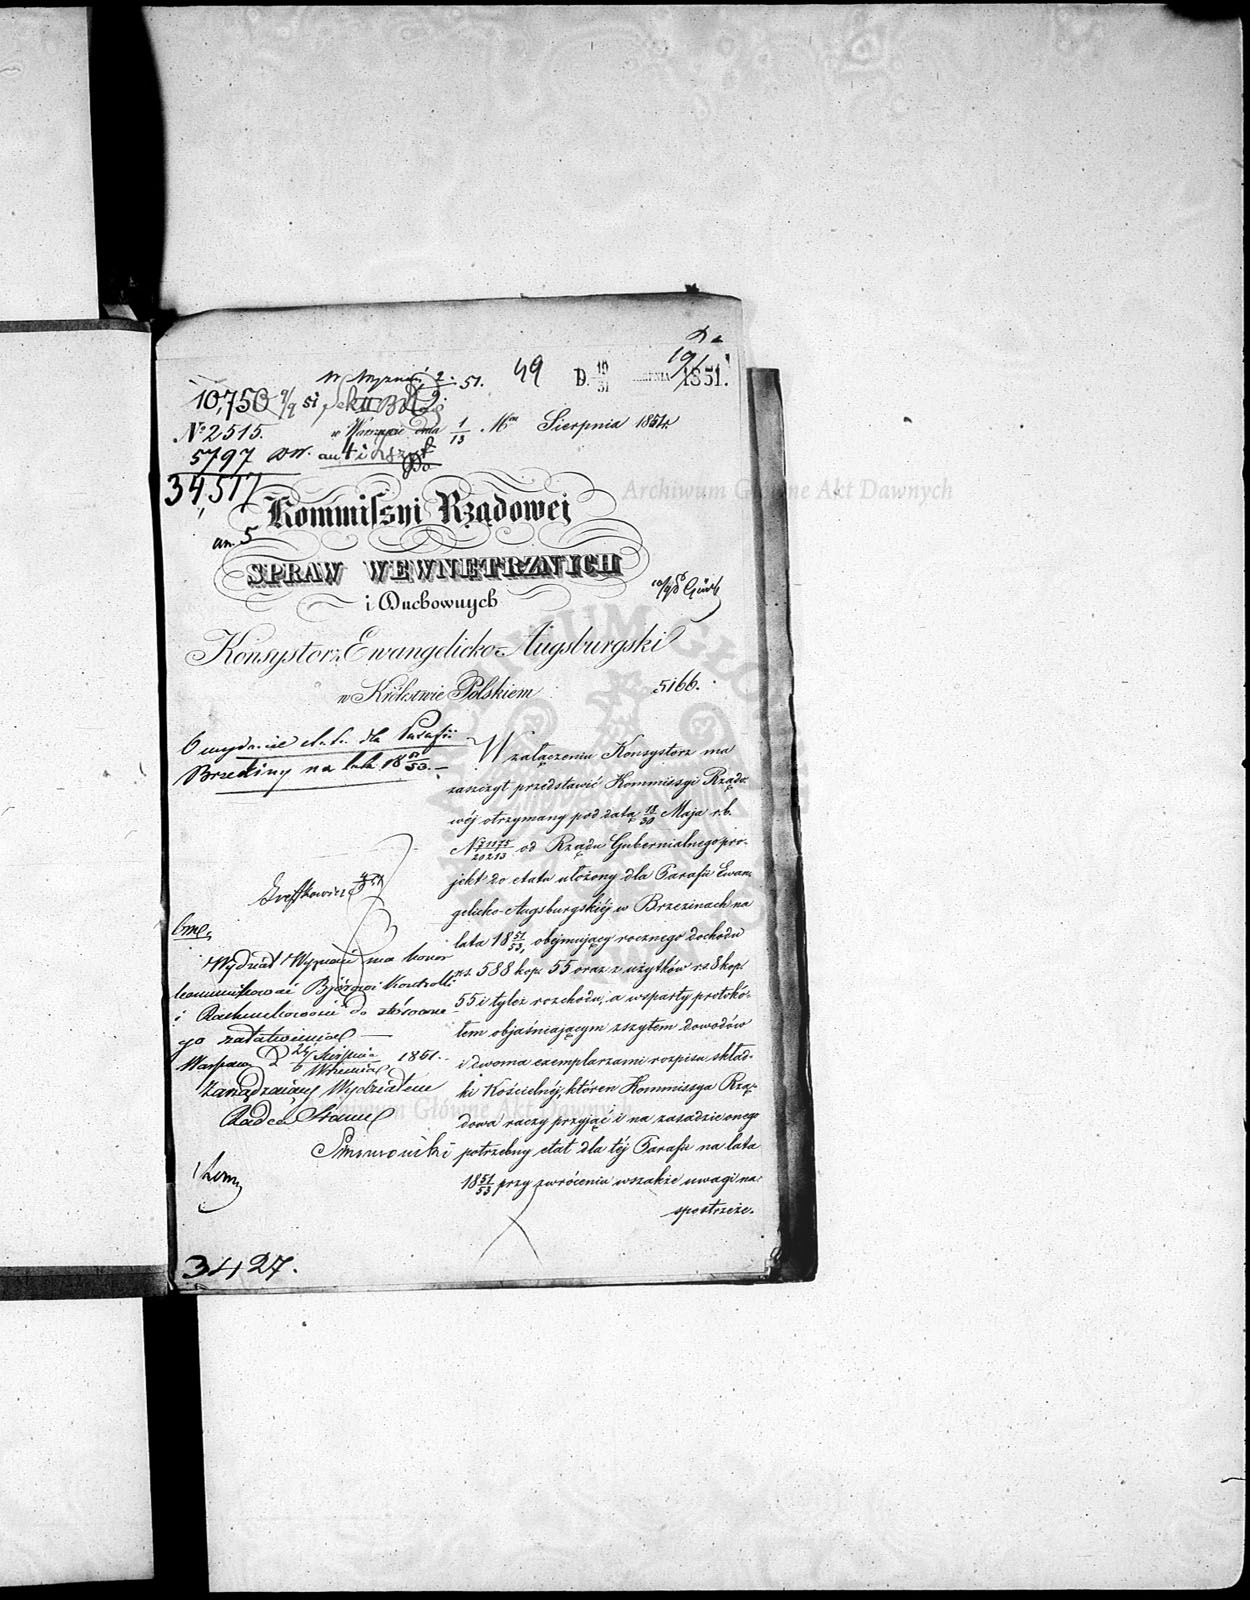 49 D. 19/31 1851.
10,750 9/9 51
W Wyznań 2. 51.
№ 2515. w Warszawie dnia 1/13 Mca Sierpnia 1851 r.
5797
34,517
an. 5
Kommissyi Rządowej
SPRAW WEWNĘTRZNYCH
i Duchownych
Konsystorz Ewangelicko-Augsburgski
w Królestwie Polskiem
5166.
O wydanie etatu dla Parafii
Brzeziny na lata 18 51/53.
W załączeniu Konsystorz ma
zaszczyt przedstawić Kommissyi Rządo-
wéj otrzymany pod datą 18/30 Maja r.b.
№ 20213 od Rządu Gubernialnego pro-
jekt do etatu ułożony dla Parafii Ewan-
gelicko-Augsburgskiéj w Brzezinach na
lata 18 51/53, obejmujący rocznego dochodu
rs. 588 kop. 55 oraz z użytków rs 8 kop.
55 i tyleż rozchodu, a wsparty protokó-
łem objaśniającym zszytem dowodów
i dwoma exemplarzami rozpisu skład-
ki Kościelnéj, któren Kommissya Rzą-
dowa raczy przyjąć i na zasadzie onego
potrzebny etat dla téj Parafii na lata
18 51/53 przy zwróceniu wszakże uwagi na
spostrzeże.
Wydział Wyznań ma honor
kommunikować Bióru Kontrolli
i Rachunkowości do stosowne-
go załatwienia
Warszawa d. 24 Sierpnia / 5 Września 1851.
Zarządzający Wydziałem
Radca Stanu
3427.
Archiwum Główne Akt Dawnych
Archiwum Główne Akt Dawnych